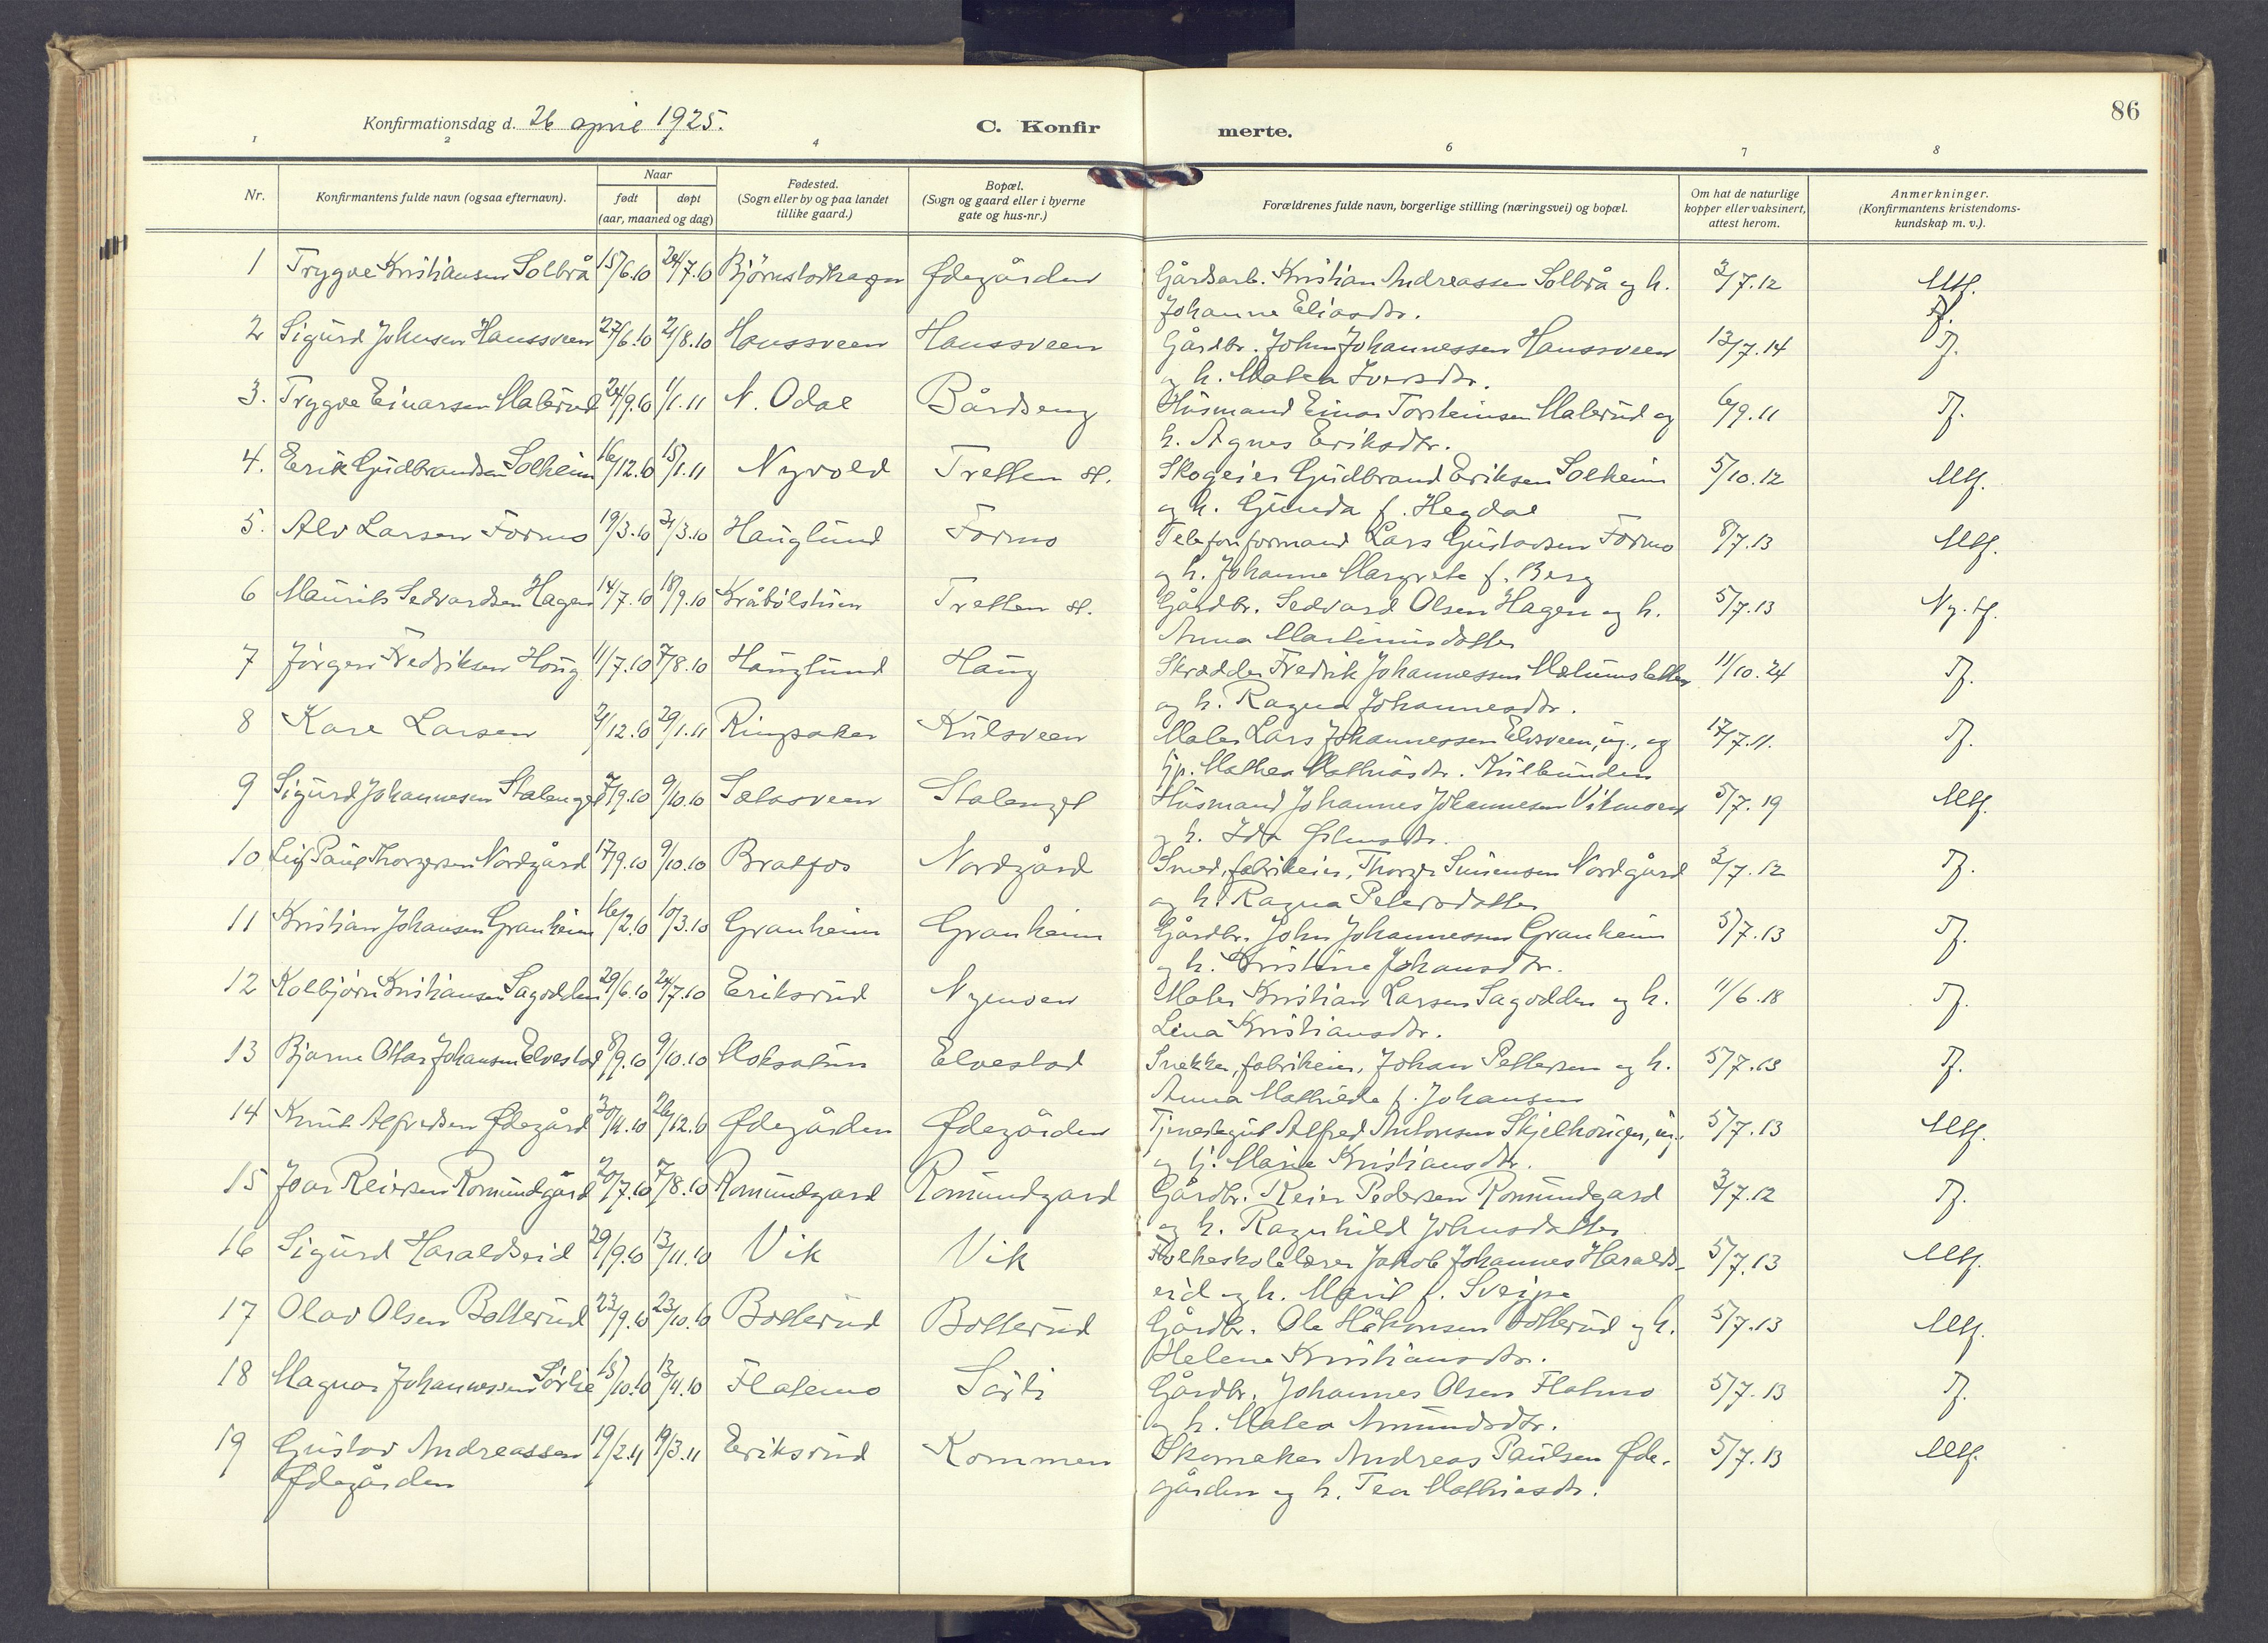 86
Konfirmationsdag d. 26 april 1925.
C. Konfirmerte.
1 2 4 6 7 8
Nr.
Konfirmantens fulde navn (ogsaa efternavn).
Naar
født døpt
(aar, maaned og dag)
Fødested.
(Sogn eller by og paa landet
tillike gaard.)
Bopæl.
(Sogn og gaard eller i byerne
gate og hus-nr.)
Forældrenes fulde navn, borgerlige stilling (næringsvei) og bopæl.
Om hat de naturlige
kopper eller vaksinert,
attest herom.
Anmerkninger.
(Konfirmantens kristendoms-
kundskap m. v.).
1 Trygve Kristiansen Solbrå 15/6.10 24/7.10 Ødegården Gårdsarb. Kristian Andreassen Solbrå og h. 3/7.12 Mtf.
Johanne Eliasdtr. Tf.
2 Sigurd Johnsen Haussveen 27/6.10 21/8.10 Haussveen Haussveen Gårdbr. John Johannessen Haussveen 13/7.14 Tf.
og h. Malea Iversdtr.
3. Trygve Einarsen Malerud 24/9.10 1/1.11 N. Odal Bårdseng Husmand Einar Torsteinsen Malerud og 6/9.11 Tf.
h. Agnes Eriksdtr.
4. Erik Gudbrandsen Solheim 16/12.10 15/1.11 Nyvold Tretten st. Skogeier Gudbrand Eriksen Solheim 5/10.12 Mtf.
og h. Gunda f. Hegdal
5. Alv Larsen Formo 19/3.10 31/3.10 Hauglund Formo Telefonformand Lars Gustavsen Formo 8/7.13 Mtf.
og h. Johanne Margrete f. Berg
6 Maurits Sedvardsen Hagen 14/7.10 18/9.10 Kråbölstuen Tretten st. Gårdbr. Sedvard Olsen Hagen og h. 5/7.13 Ng. tf.
Anna Martinusdatter
7 Jörgen Fredriksen Haug 11/7.10 7/8.10 Hauglund Haug Skrædder Fredrik Johannessen Mælumsletten 11/10.24 Tf.
og h. Ragna Johannesdtr.
8 Kare Larsen 21/12.10 29/1.11 Ringsaker Kulsveen Maler Lars Johannessen Elvsveen, ug., og 17/7.11. Tf.
Mathea Mathiasdtr. Kulbunden
9 Sigurd Johannesen Stalengel 7/9.10 9/10.10 Stalengel Husmand Johannes Johannesen Vikmoen 5/7.19 Mtf.
og h. Ida
10 Leif Paul Thorgersen Nordgård 17/9.10 9/10.10 Bratfos Nordgård Smed, fabrikeier, Thorger Simensen Nordgård 3/7.12 Tf.
og h. Ragna Petersdatter
11 Kristian Johansen Granheim 16/2.10 10/3.10 Granheim Granheim Gårdbr. John Johannessen Granheim 5/7.13 Tf.
og h. Kristine Johansdtr.
12 Kolbjörn Kristiansen Sagodden 29/6.10 24/7.10 Eriksrud Nymoen Maler Kristian Larsen Sagodden og h. 11/6.18 Tf.
Lina Kristiansdtr.
13 Bjarne Ottar Johansen Elvestad 8/9.10 9/10.10 Moksatun Elvestad Snekker, fabrikeier, Johan Pettersen og h. 5/7.13 Tf.
Anna Mathilde f. Johansen
14 Knut Alfredsen Ødegård 30/11.10 26/12.10 Ødegården Ødegården Tjenestegut Alfred Antonsen Skjelhaugen, ug., 5/7.13 Mtf.
og Marie Kristiansdtr.
15 Joar Reiersen Romundgård 20/7.10 7/8.10 Romundgard Romundgard Gårdbr. Reier Pedersen Romundgard 3/7.12 Tf.
og h. Ragnhild Johnsdatter
16 Sigurd Haraldseid 29/9.10 13/11.10 Vik Vik Folkeskolelærer Jakob Johannes Haralds- 5/7.13 Mtf.
eid og h. Marit f. Sveipe
17 Olav Olsen Botterud 23/9.10 23/10.10 Botterud Botterud Gårdbr. Ole Håkonsen Botterud og h. 5/7.13 Mtf.
Helene Kristiansdtr.
18 Magnar Johannessen Sörlie 15/10.10 13/11.10 Flatmo Sörli Gårdbr. Johannes Olsen Flatmo 5/7.13 Tf.
og h. Malea Amundsdtr.
19 Gustav Andreassen 19/2.11 19/3.11 Eriksrud Kommen Skomaker Andreas Paulsen Øde- 5/7.13 Mtf.
Ødegården gården og h. Tea Mathiasdtr.